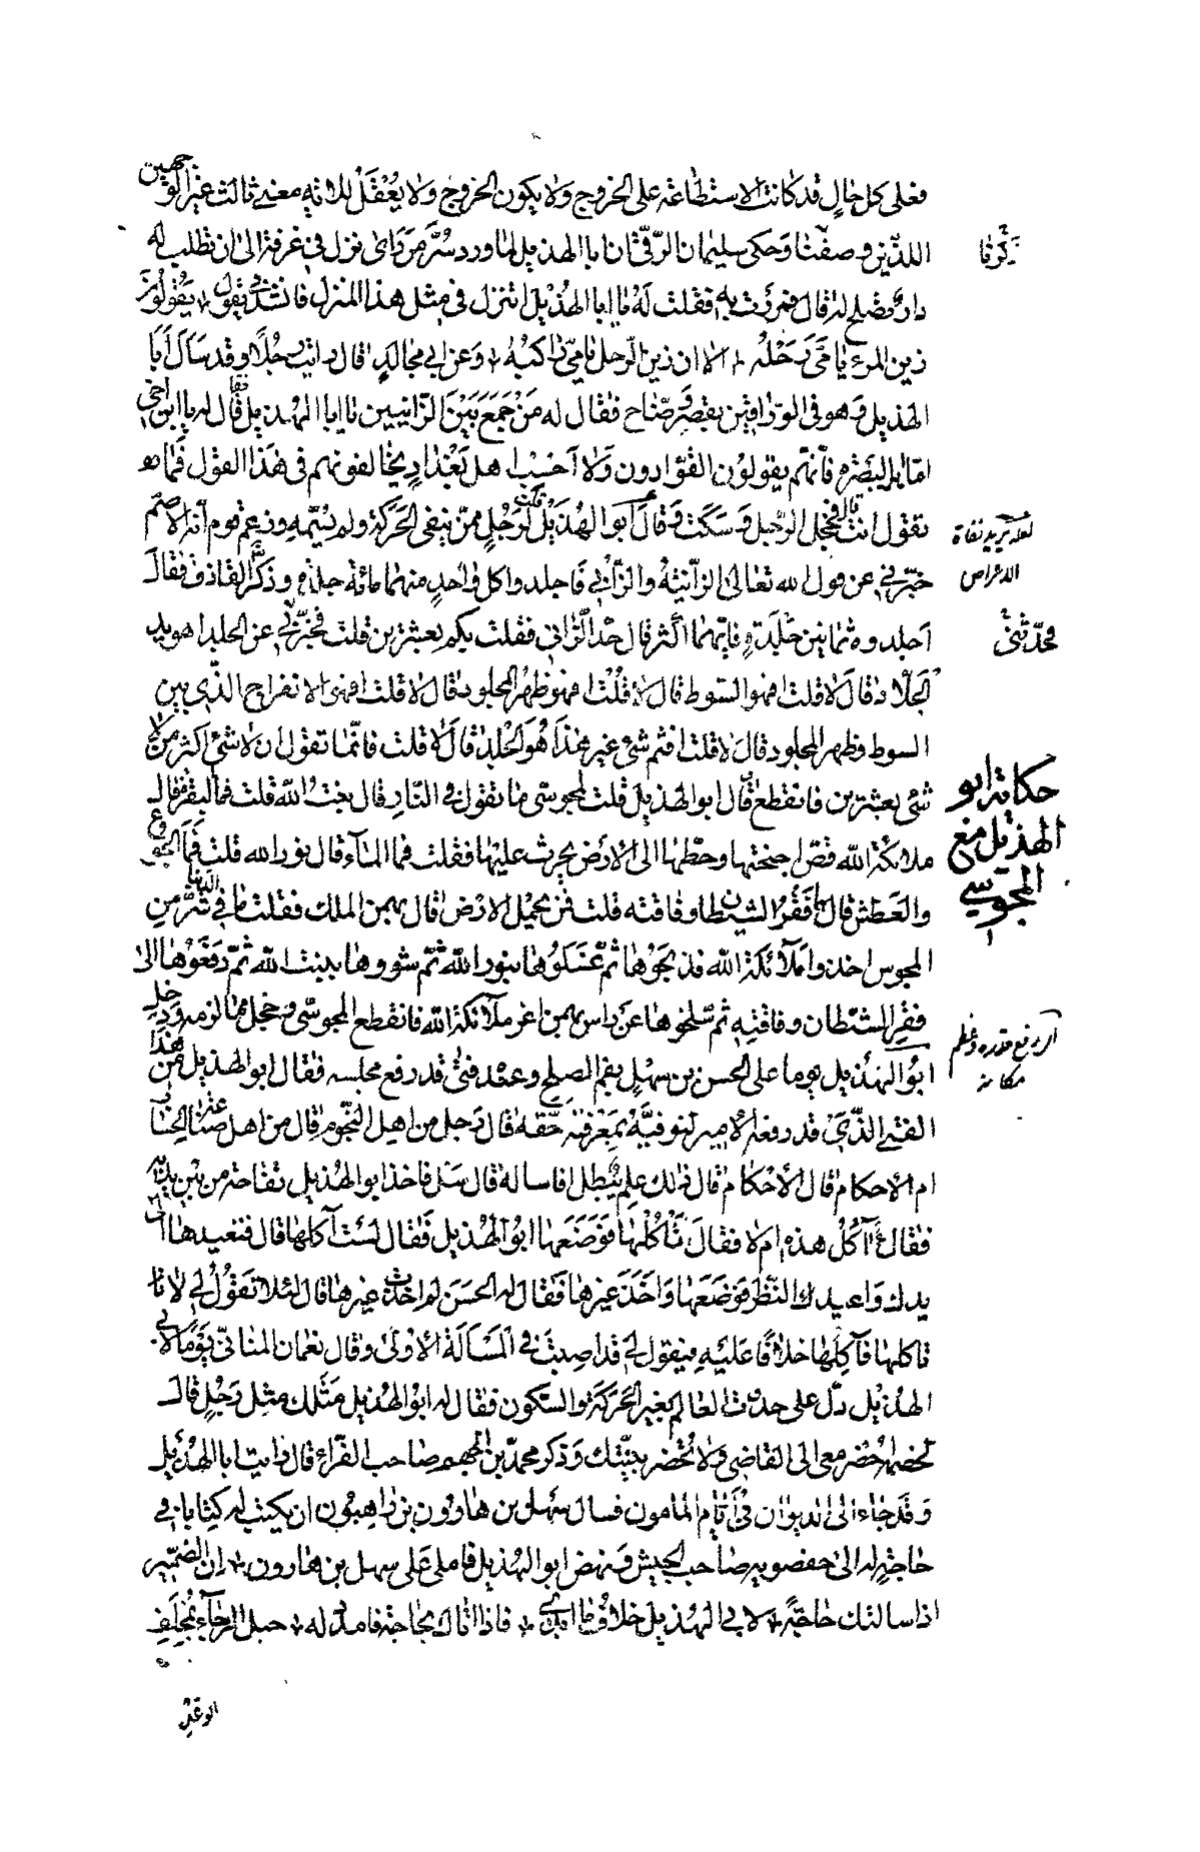 فعلى كل حال قد كانت الاستطاعة على الخروج ولا يكون الخروج ولا يعقل للاية معنى ثالث غير الوجهين
اللذين وصفنا وحكى سليمان الرقي ان ابا الهذيل لما ورد سر من راى نزل في غرفة الى ان تطلب له
دار تصلح له قال فمررت به فقلت له يا ابا الهذيل اتنزل في مثل هذا المنزل فانشدني يقول يقولون
زين المرء يا مي رحله الا ان زين الرحل يا مي راكبه وعن ابي مجالد قال رايت رجلا وقد سال ابا
الهذيل وهو في الوراقين بقصر وضاح فقال له من جمع بين الزانيين يا ابا الهذيل فقال له يا ابن اخي
اما بالبصرة فانهم يقولون القوادون ولا احسب اهل بغداد يخالفونهم في هذا القول فما
تقول انت قال فخجل الرجل وسكت وقال ابو الهذيل قلت لرجل ممن ينفي الحركة ولم يسمه وزعم قوم انه الاصم
خبرني عن قول الله تعالى الزانية والزاني فاجلدوا كل واحد منهما مائة جلدة وذكر القاذف فقال
اجلدوه ثمانين جلدة فايهما اكثر قال حد الزاني فقلت بكم بعشرين قلت فخبرني عن الجلد اهو يد
الجلاد قال لا قلت افهو السوط قال لا قلت افهو ظهر المجلود قال لا قلت افهو الانفراج الذي بين
السوط وظهر المجلود قال لا قلت افثم شئ غير هذا هو الجلد قال لا قلت فانما تقول ان لا شئ اكثر من لا
شئ بعشرين فانقطع قال ابو الهذيل قلت لمجوسي ما تقول في النار قال بنت الله قلت فما البقر قال
ملائكة الله قص اجنحتها وحطها الى الارض يحرث عليها فقلت فما الماء قال نور الله قلت فما الجوع
والعطش قال فقر الشيطان وفاقته قلت فمن يحمل الارض قال بهمن الملك فقلت ما في الدنيا شر من
المجوس اخذوا ملائكة الله فذبحوها ثم غسلوها بنور الله ثم شووها ببنت الله ثم دفعوها الى
فقر الشيطان وفاقته ثم سلخوها عن راس بهمن اعز ملائكة الله فانقطع المجوسي وخجل مما لزمه ودخل
ابو الهذيل يوما على الحسن بن سهل بفم الصلح وعنده فتى قد رفع مجلسه فقال ابو الهذيل من هذا
الفتى الذي قد رفعه الامير لنوفيه بمعرفته حقه قال رجل من اهل النجوم قال من اهل صناعة الحساب
ام الاحكام قال الاحكام قال ذلك علم يبطل افاساله قال سل فاخذ ابو الهذيل تفاحة من بين يديه
فقال أآكل هذه ام لا فقال تاكلها فوضعها ابو الهذيل فقال لست آكلها قال فتعيدها الى
يدك واعيد النظر فوضعها واخذ غيرها فقال له الحسن لم اخذت غيرها قال لئلا تقول لي لا
تاكلها فآكلها خلافا عليه فيقول لي قد اصبت في المسالة الاولى وقال نعمان المناني يوما لابي
الهذيل دل على حدث العالم بغير الحركة والسكون فقال له ابو الهذيل مثلك مثل رجل قال
لخصمه احضر معي الى القاضي ولا تحضر بينتك وذكر محمد بن الجهم صاحب الفراء قال رايت ابا الهذيل
وقد جاء الى الديوان في ايام المامون فسال سهل بن هارون بن راهبون ان يكتب له كتابا في
حاجة له الى حفصويه صاحب الجيش ونهض ابو الهذيل فاملى على سهل بن هارون ان الضمير
اذا سالتك حاجة لابي الهذيل خلاف ما ابدى فاذا اتاك بحاجة فامدد له حبل الرجاء بمخلف
الوعد
لعله يريد نفاة
الاعراض
حكاية ابو
الهذيل مع
المجوسي
اي رفع قدره وعظم
مكانه